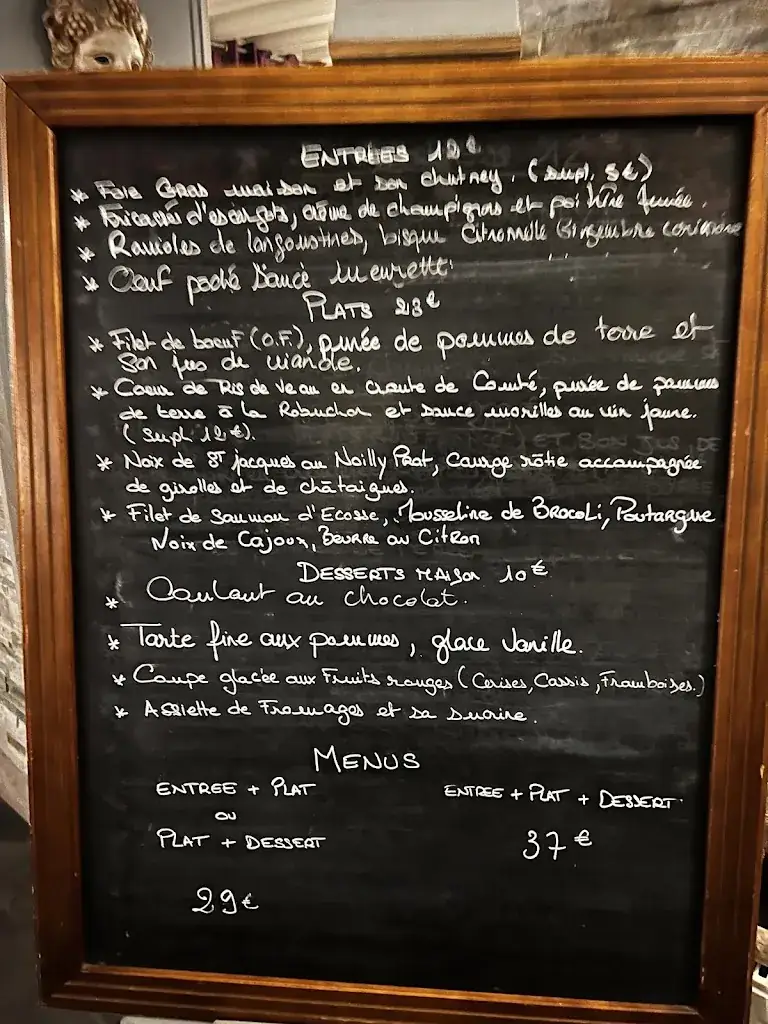 ENTRÉES 12€
* Foie Gras maison et son chutney. (supl. 5€)
* Fricassée d'escargots, crème de champignons et poitrine fumée.
* Ravioles de langoustines, bisque Citronnelle Gingembre coriandre
* Oeuf poché Sauce meurette.
PLATS 23€
* Filet de boeuf (O.F.), purée de pommes de terre et
son jus de viande.
* Coeur de Ris de Veau en croute de Comté, purée de pommes
de terre à la Robuchon et sauce morilles au vin jaune.
(supl 12€).
* Noix de St jacques au Noilly Prat, Courge rôtie accompagnée
de girolles et de châtaignes.
* Filet de Saumon d'Ecosse, Mousseline de BROCOLI, Poutargue
Noix de Cajoux, BEURRE au CITRON
DESSERTS MAISON 10€
* Coulant au chocolat.
* Tarte fine aux pommes, glace Vanille.
* Coupe glacée aux Fruits rouges (Cerises, Cassis, Framboises.)
* Assiette de Fromages et sa
MENUS
ENTREE + PLAT
OU
PLAT + DESSERT
29€
ENTREE + PLAT + DESSERT
37€